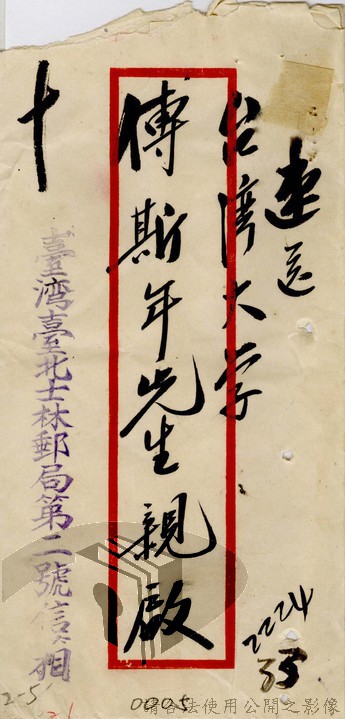 速送
台湾大学
傅斯年先生親啟
十
臺灣臺北士林郵局第二號信箱
2224
2-5
0005
請合法使用公開之影像